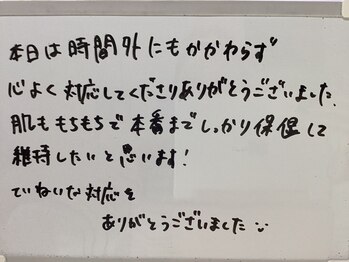 本日は時間外にもかかわらず
心よく対応してくださりありがとうございました.
肌ももちもちで本番までしっかり保湿して
維持したいと思います!
ていねいな対応を
ありがとうございました